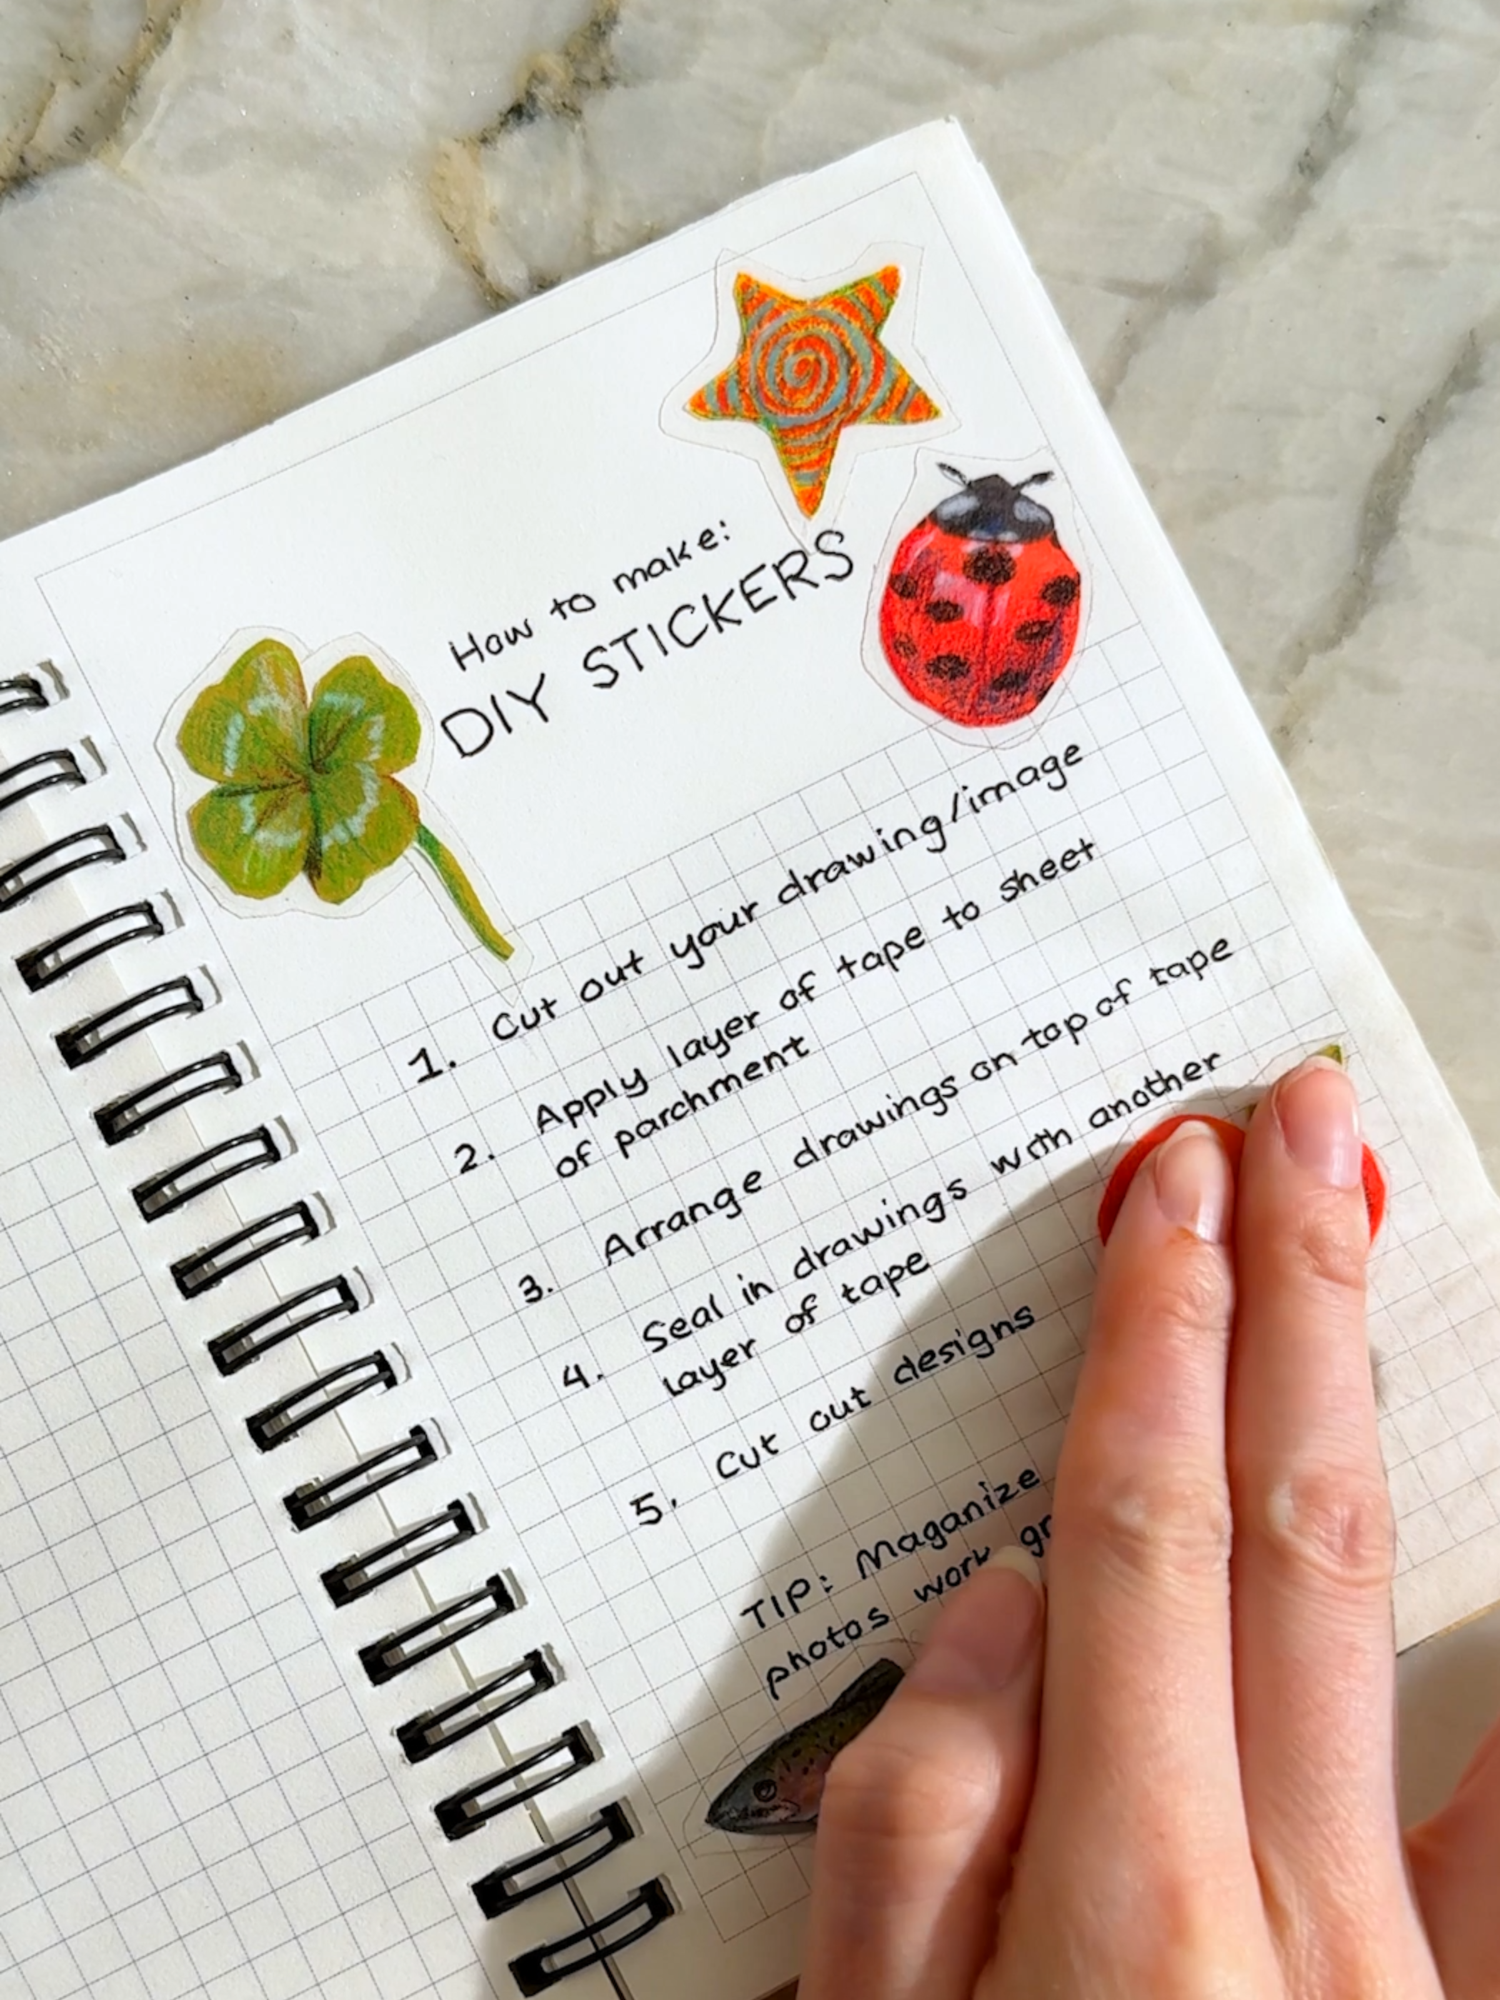 How to make:
DIY STICKERS
1. Cut out your drawing/image
2. Apply layer of tape to sheet
of parchment
3. Arrange drawings on top of tape
4. Seal in drawings with another
layer of tape
5. Cut out designs
TIP: Maganize
photos work